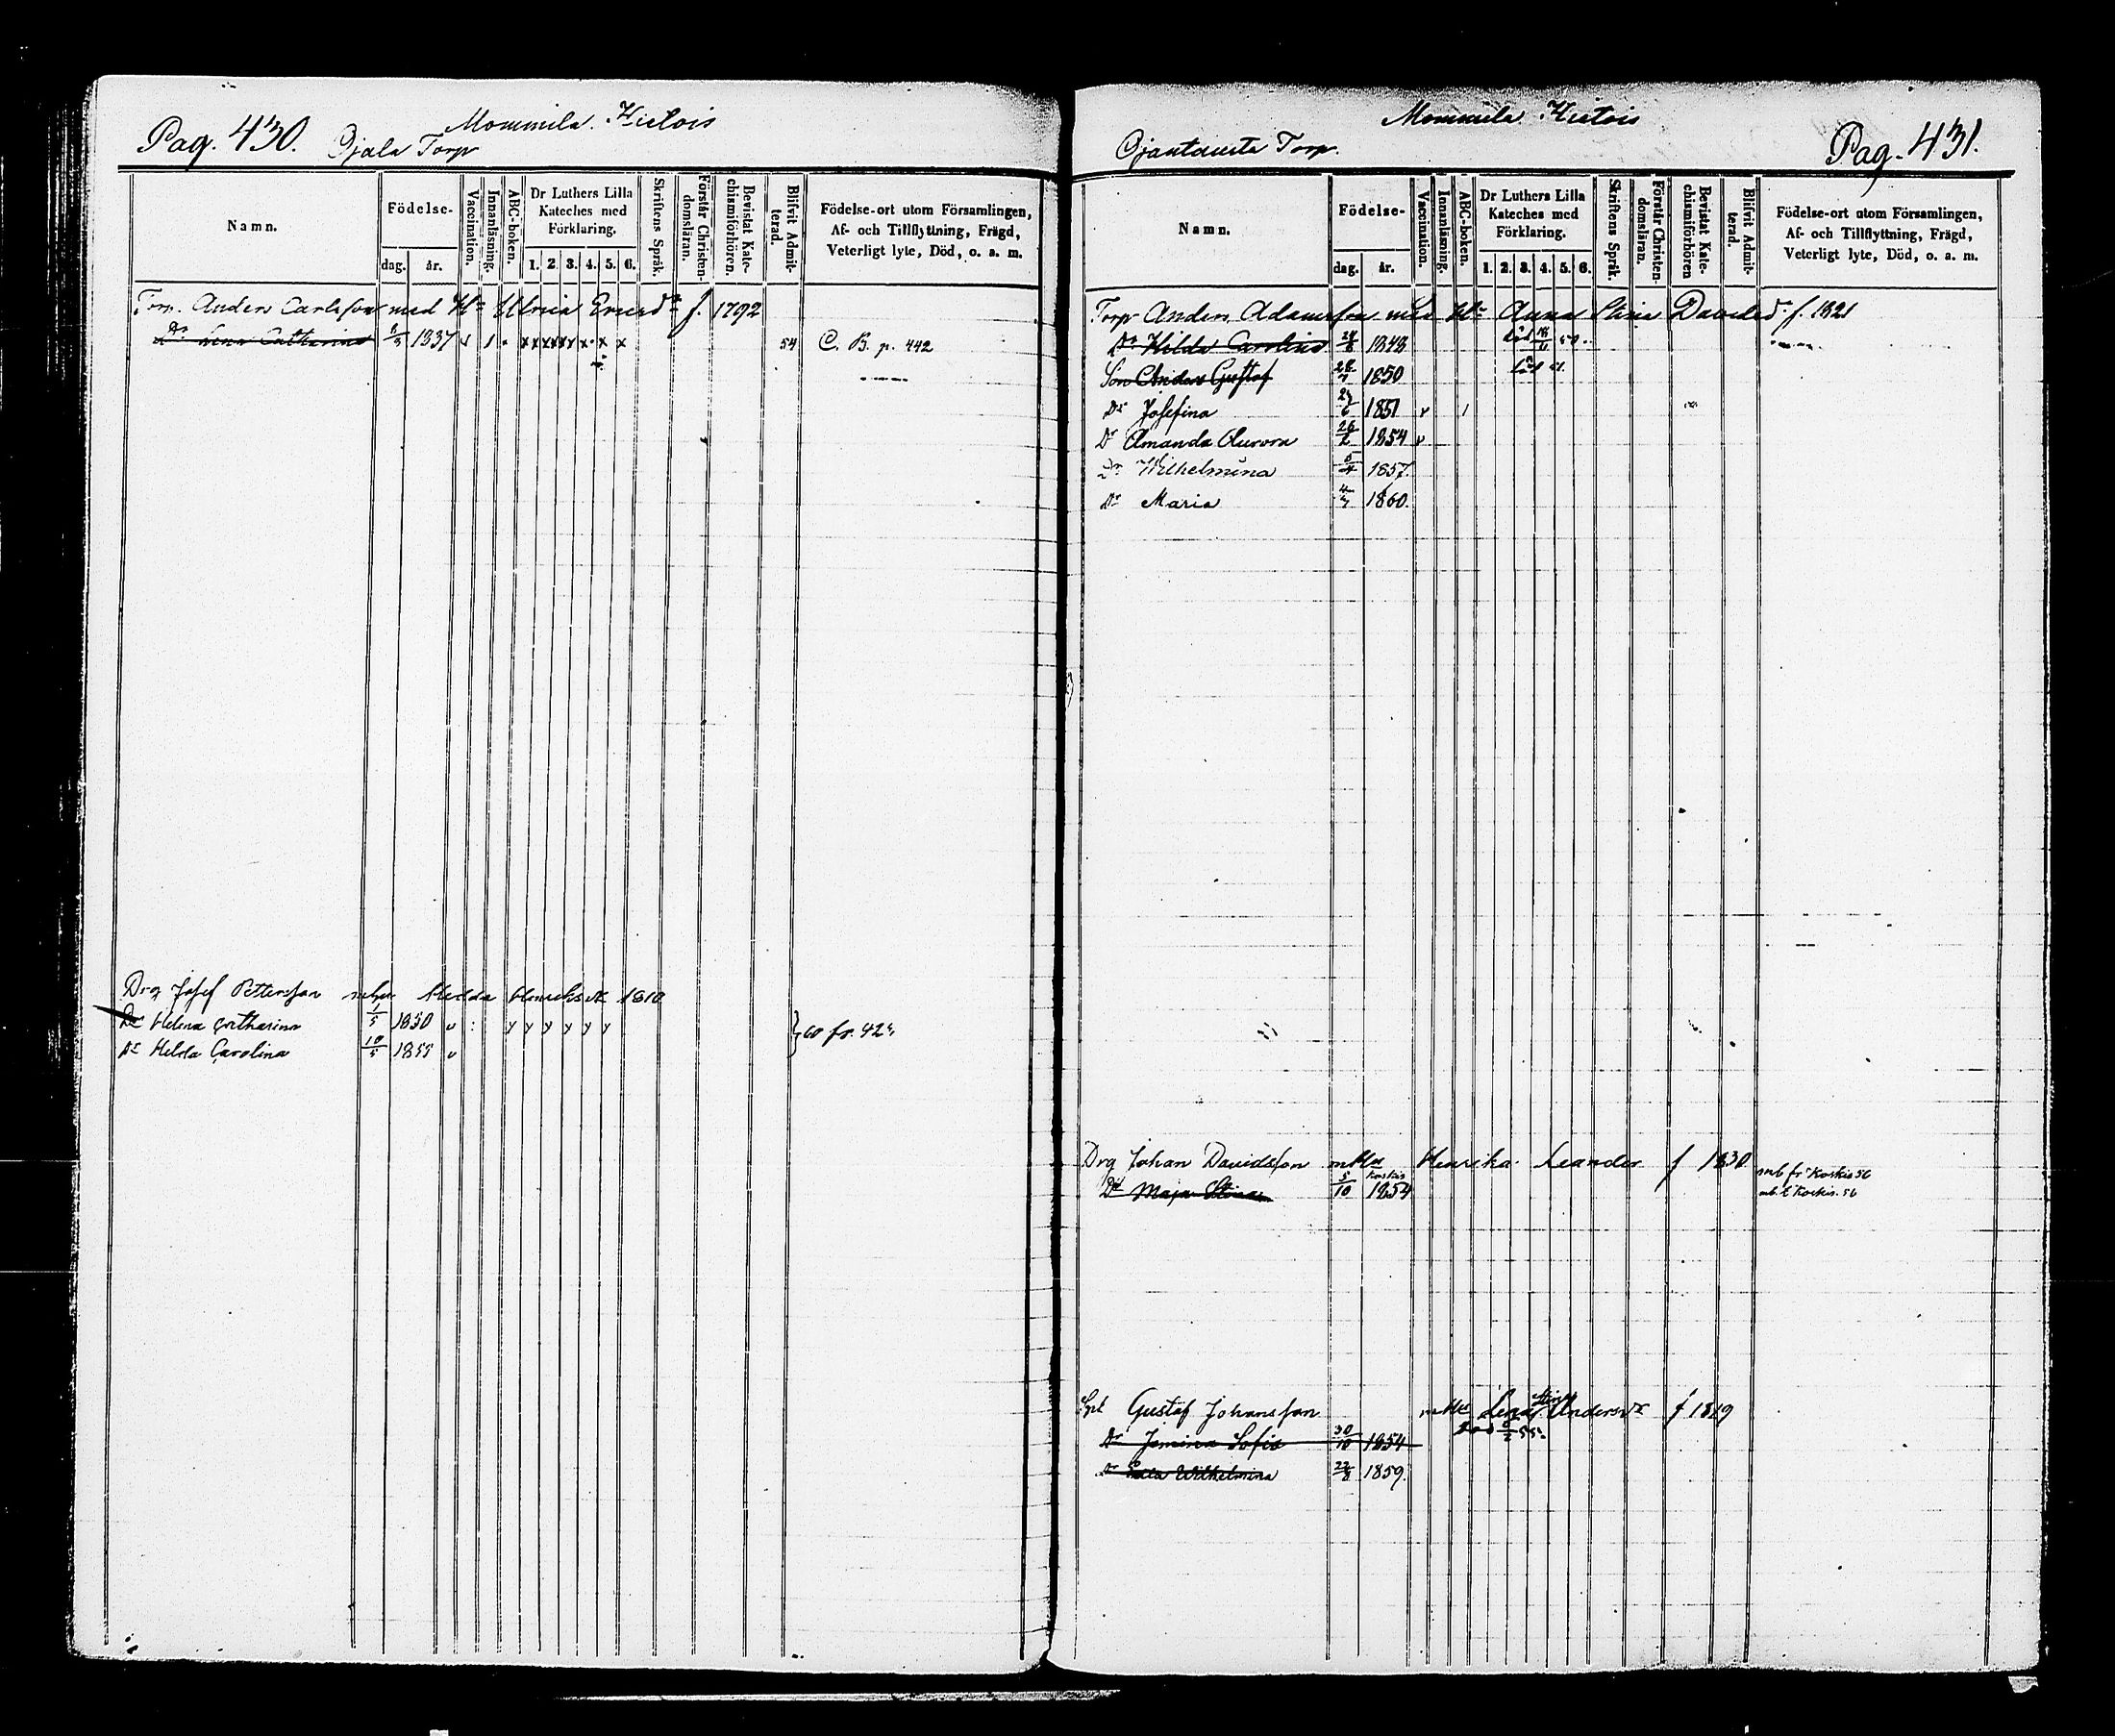 Pag. 430. Mommila Hietois
Ojala Torp
Namn. Födelse- dag. år. Vaccination. Innanläsning. ABC-boken. Dr Luthers Lilla Kateches med Förklaring. 1. 2. 3. 4. 5. 6. Skriftens Språk. Förstår Christendomsläran. Bevistat Katechismiförhören. Blifvit Admitterad. Födelse-ort utom Församlingen, Af- och Tillflyttning, Frägd, Veterligt lyte, Död, o. a. m.
Torp. Anders Carlsson med Hu Ulrica Ericsdr f. 1792
Dr Lena Catharina 1837 v 1 x x x x x x x x 54 C. B. p. 442
Drg Josef Pettersson mhu Hedda Henricksdr 1810
Dr Helena Catharina 1/5 1850 v : y y y y y y } co fr. 42
Dr Hilda Carolina 10/5 1855 v
Mommila Hietois
Ojantausta Torp. Pag. 431.
Namn. Födelse- dag. år. Vaccination. Innanläsning. ABC-boken. Dr Luthers Lilla Kateches med Förklaring. 1. 2. 3. 4. 5. 6. Skriftens Språk. Förstår Christendomsläran. Bevistat Katechismiförhören Blifvit Admitterad. Födelse-ort utom Församlingen, Af- och Tillflyttning, Frägd, Veterligt lyte, Död, o. a. m.
Torp Anders Adamsson med Hu Anna Stina Davidsdr f. 1821
Dr Hilda Carolina 1848
Son Anders Gustaf 1850
Dr Josefina 1851 v 1
Dr Amanda Aurora 26/2 1854 v
Dr Wilhelmina 5/4 1857.
Dr Maria 1860.
Drg Johan Davidsson mHu Henrika Leander f 1830 mb fr Koskis 56
Dr Maja Stina 5/10 Koskis 1854 mb t Koskis. 56
Spl Gustaf Johansson mHu Lena Stina Andersdr f 1819
Dr Jemina Sofia 30/10 1854 död 55.
Dr Wilhelmina 22/8 1859.